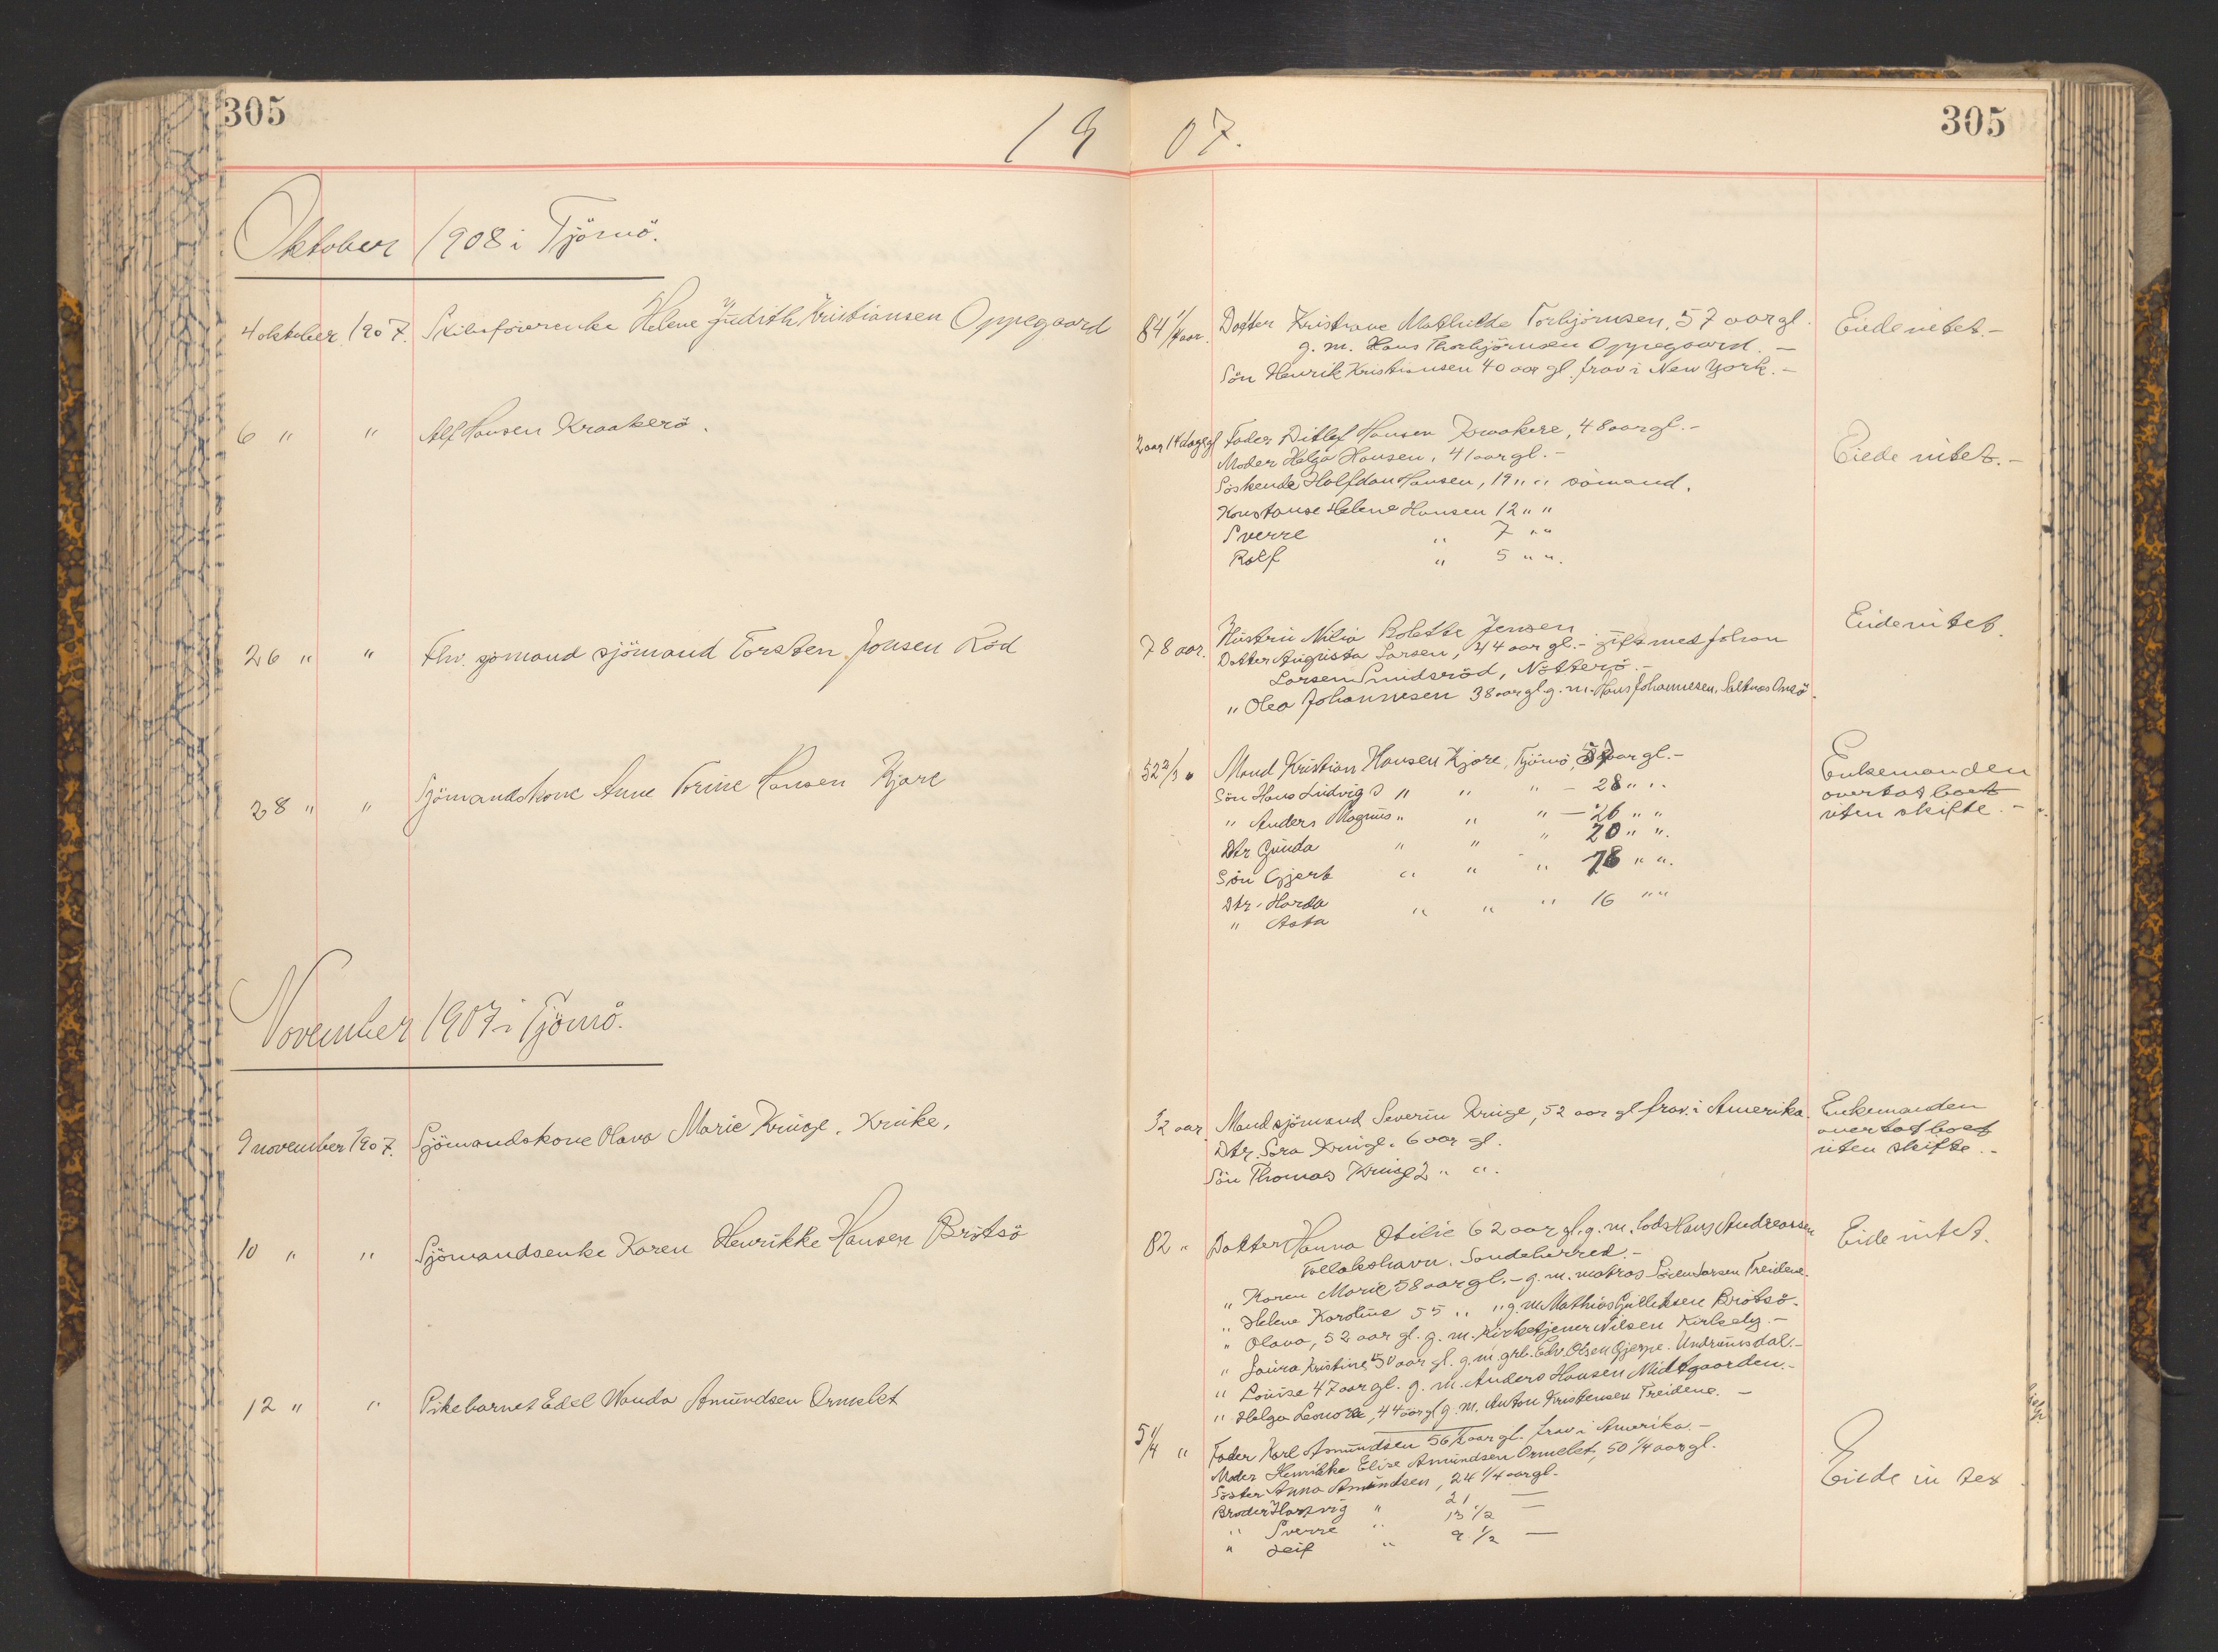 305
305
19 07.
Oktober 1908 i Tjömö.
4 oktober 1907. Skibsförerenke Helene Judith Kristiansen Oppegaard
84 1/4 aar. Datter Kristiane Mathilde Torbjörnsen, 57 aar gl.
g. m. Hans Thorbjörnsen Oppegaard. –
Sön Henrik Kristiansen 40 aar gl. frav. i New York. –
Eiede intet –
6 " " Alf Hansen Kraakerö.
2 aar 14 dage gl Fader Ditlef Hansen Kraakere, 48 aar gl. –
Moder Helga Hansen, 41 aar gl. –
Söskende Halfdan Hansen, 19 " " sömand.
Konstanse Helene Hansen 12 " "
Sverre " 7 " "
Rolf " 5 " ".
Eiede intet. –
26 " " Fhv. sjömand sjömand Torsten Jonsen Röd
78 aar. Hustru Nilia Bolette Jensen
Datter Augusta Larsen, 44 aar gl. – gift med Johan
Larsen Smidsröd, Nötterö. –
" Olea Johannesen 38 aar gl. g. m. Hans Johannesen, Saltnes Onsö.
Eiede intet.
28 " " Sjömandskone Anne Torine Hansen Kjære
52 2/3 " Mand Kristian Hansen Kjære, Tjömö, 57 aar gl. –
Sön Hans Ludvig " " " – 28 " "
" Anders Magnus " " " – 26 " "
Dtr Gunda " " " 20 " ".
Sön Gjert " " " 18 " ".
Dtr. Harda " " " 16 " "
" Asta
Enkemanden
overtat boet
uten skifte. –
November 1907 i Tjömö.
9 november 1907. Sjömandskone Olava Marie Kruge, Kruke.
32 aar. Mand sjömand Severin Kruge, 52 aar gl frav. i Amerika.
Dtr. Sara Kruge. 6 aar gl.
Sön Thomas Kruge 2 " ".
Enkemanden
overtat boet
uten skifte. –
10 " " Sjömandsenke Karen Henrikke Hansen Brötsö
82 " Datter Hanna Otilie 62 aar gl. g. m. lods Hans Andreassen
Follakshavn. Sandeherred. –
" Karen Marie 58 aar gl. – g. m. matros Sören Larsen Treidene.
" Helene Karoline 55 " " g. m Mathias Gulliksen Brötsö.
" Olava, 52 aar gl. g. m. Kirketjener Nilsen Kirkely. –
" Laura Kristine 50 aar gl. g. m. grb. Edv. Olsen Gjerpe. Undrumsdal. –
" Louise 47 aar gl. g. m. Anders Hansen Midtgaarden. –
" Helga Leonore, 44 aar gl g. m. Anton Kristensen Treidene. –
Eide intet.
12 " " Pikebarnet Edel Wanda Amundsen Ormelet
5 1/4 " Fader Karl Amundsen 56 1/2 aar gl. frav i Amerika. –
Moder Henrikke Elise Amundsen Ormelet, 50 1/4 aar gl.
Söster Anna Amundsen, 24 1/4 aar gl. –
Broder Hartvig " 21 –
" Sverre " 13 1/2
" Leif " 9 1/2 –
Eiede intet